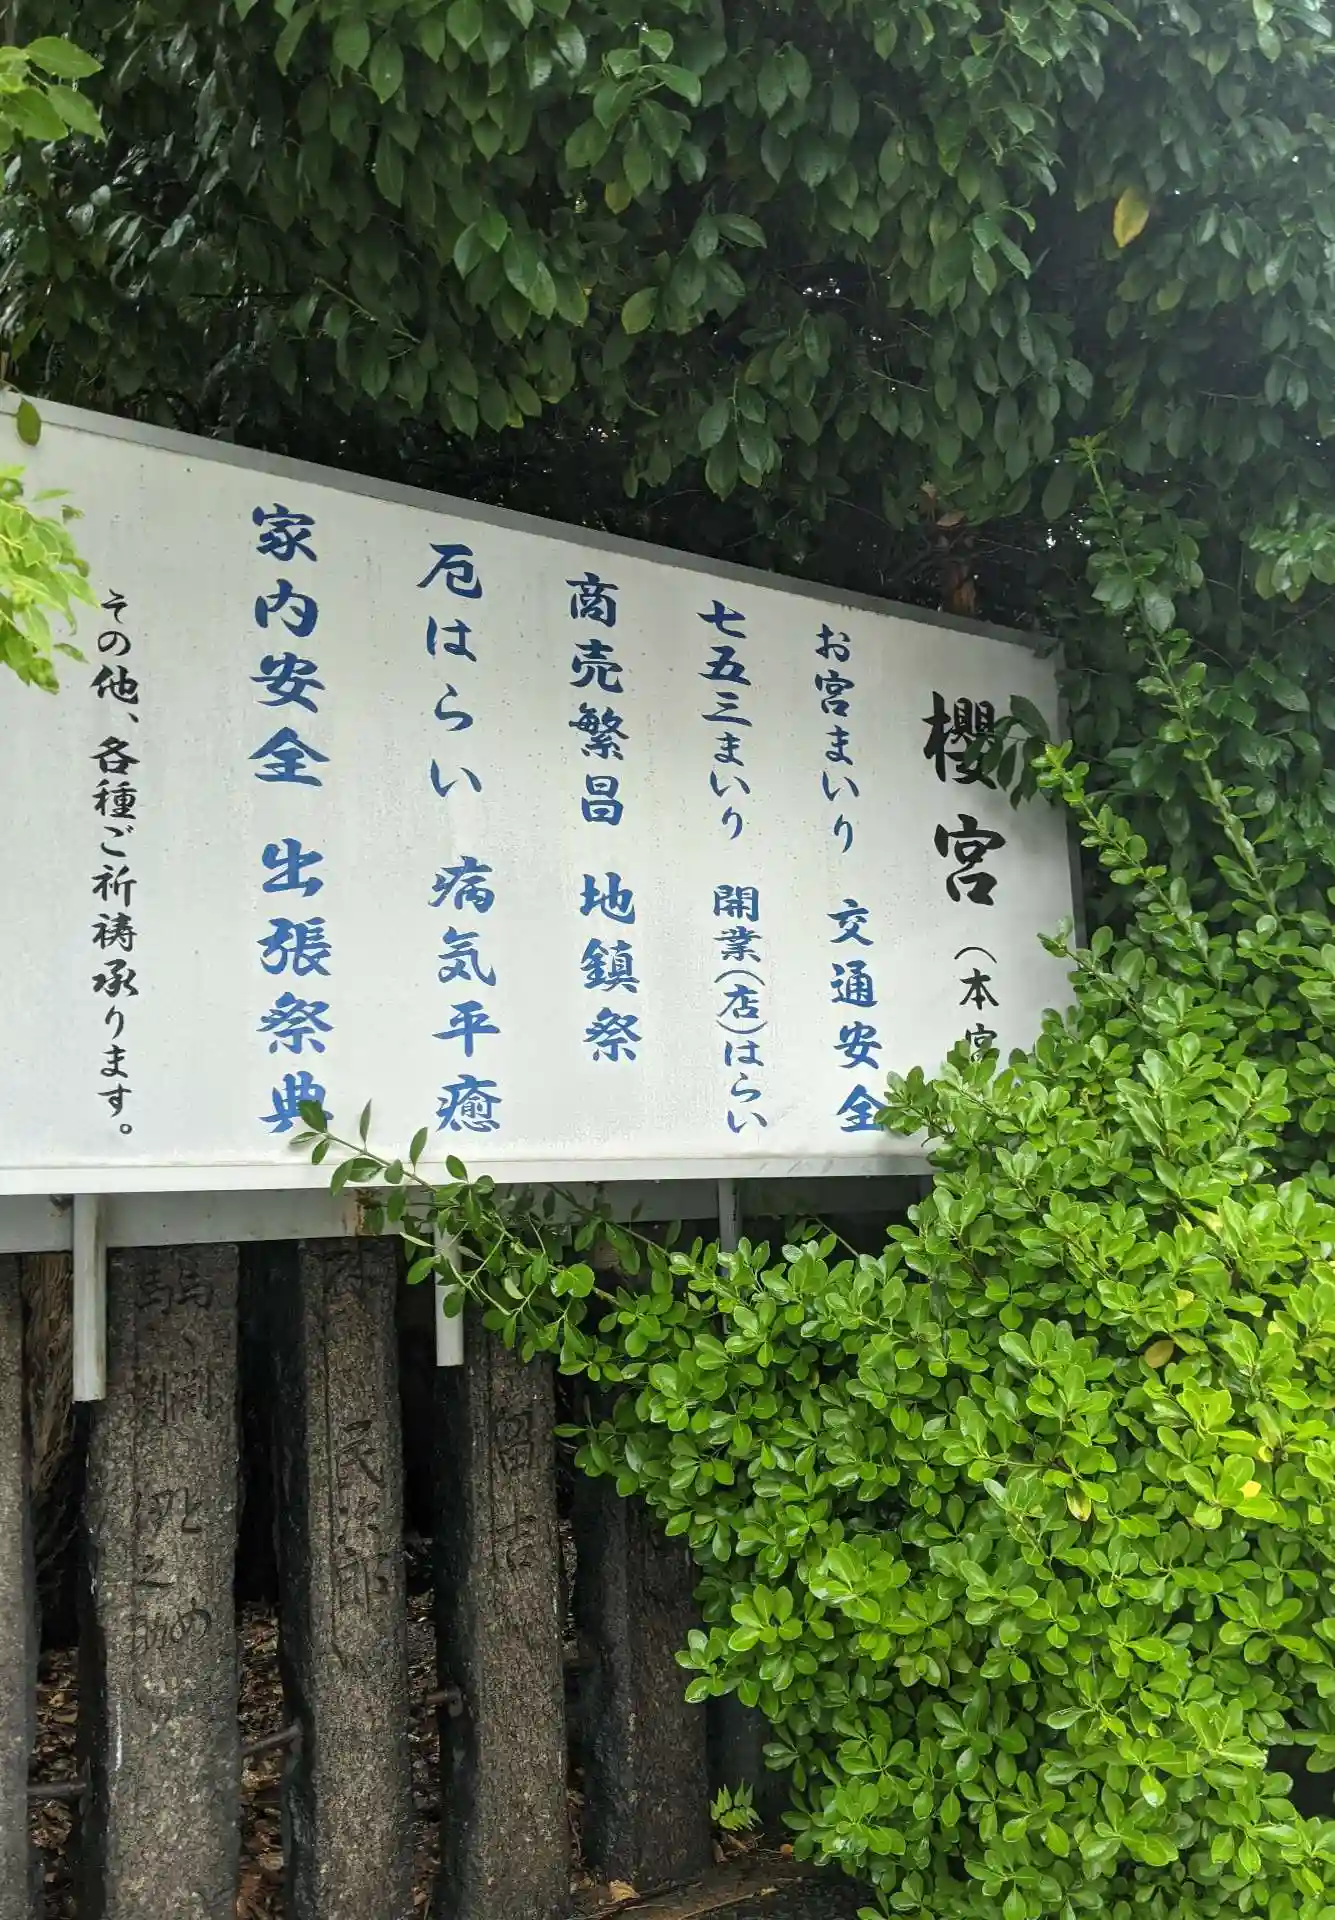 櫻宮（本宮
お宮まいり 交通安全
七五三まいり 開業（店）はらい
商売繁昌 地鎮祭
厄はらい 病気平癒
家内安全 出張祭典
その他、各種ご祈祷承ります。
留吉
民次郎